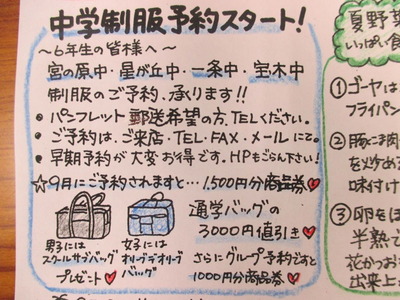 中学制服予約スタート!
～6年生の皆様へ～
宮の原中・星が丘中・一条中・宝木中
制服のご予約、承ります!!
• パンフレット郵送希望の方、TELください。
• ご予約は、ご来店・TEL・FAX・メールにて。
• 早期予約が大変お得です。HPもごらん下さい!
☆9月にご予約されますと…1,500円分商品券
通学バッグの
3000円値引き
男子には
スクールサブバッグ
プレゼント
女子には
オリーブデオリーブ
バッグ
さらにグループ予約ですと
1000円分商品券
夏野菜
いっぱい食
①ゴーヤは
フライパン
②豚こま肉
を炒める
味付け
③卵をほ
半熟で
花かつお
出来上